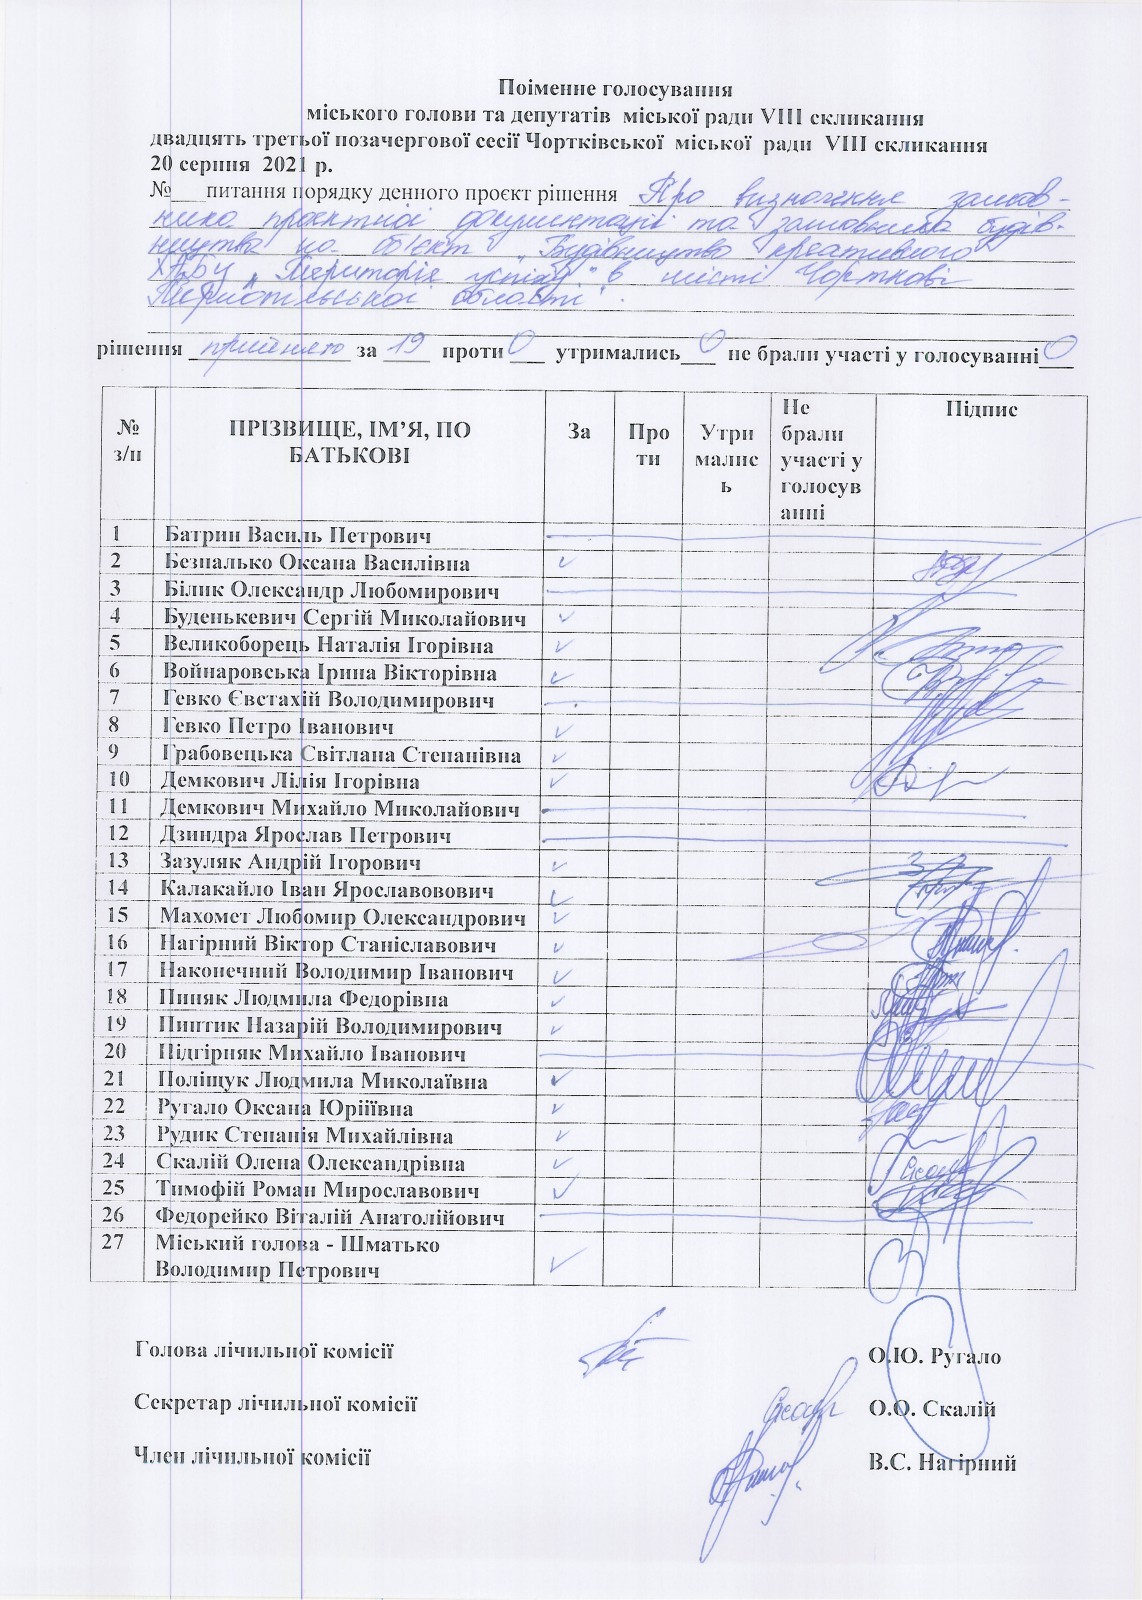 Поіменне голосування
міського голови та депутатів міської ради VIII скликання
двадцять третьої позачергової сесії Чортківської міської ради VIII скликання
20 серпня 2021 р.
№___питання порядку денного проєкт рішення Про визначення замов-
ника проєктної документації та замовника будів-
ництва на об'єкт „Будівництво креативного
ХАБу „Територія успіху" в місті Чорткові
Тернопільської області".
рішення прийнято за 19 проти 0 утримались 0 не брали участі у голосуванні 0
№ з/п ПРІЗВИЩЕ, ІМ’Я, ПО БАТЬКОВІ За Про ти Утри малис ь Не брали участі у голосув анні Підпис
1 Батрин Василь Петрович
2 Безпалько Оксана Василівна ✓
3 Білик Олександр Любомирович
4 Буденькевич Сергій Миколайович ✓
5 Великоборець Наталія Ігорівна ✓
6 Войнаровська Ірина Вікторівна ✓
7 Гевко Євстахій Володимирович
8 Гевко Петро Іванович ✓
9 Грабовецька Світлана Степанівна ✓
10 Демкович Лілія Ігорівна ✓
11 Демкович Михайло Миколайович
12 Дзиндра Ярослав Петрович
13 Зазуляк Андрій Ігорович ✓
14 Калакайло Іван Ярославовович ✓
15 Махомет Любомир Олександрович ✓
16 Нагірний Віктор Станіславович ✓
17 Наконечний Володимир Іванович ✓
18 Пиняк Людмила Федорівна ✓
19 Пиптик Назарій Володимирович ✓
20 Підгірняк Михайло Іванович
21 Поліщук Людмила Миколаївна ✓
22 Ругало Оксана Юріївна ✓
23 Рудик Степанія Михайлівна ✓
24 Скалій Олена Олександрівна ✓
25 Тимофій Роман Мирославович ✓
26 Федорейко Віталій Анатолійович
27 Міський голова - Шматько
Володимир Петрович ✓
Голова лічильної комісії О.Ю. Ругало
Секретар лічильної комісії О.О. Скалій
Член лічильної комісії В.С. Нагірний